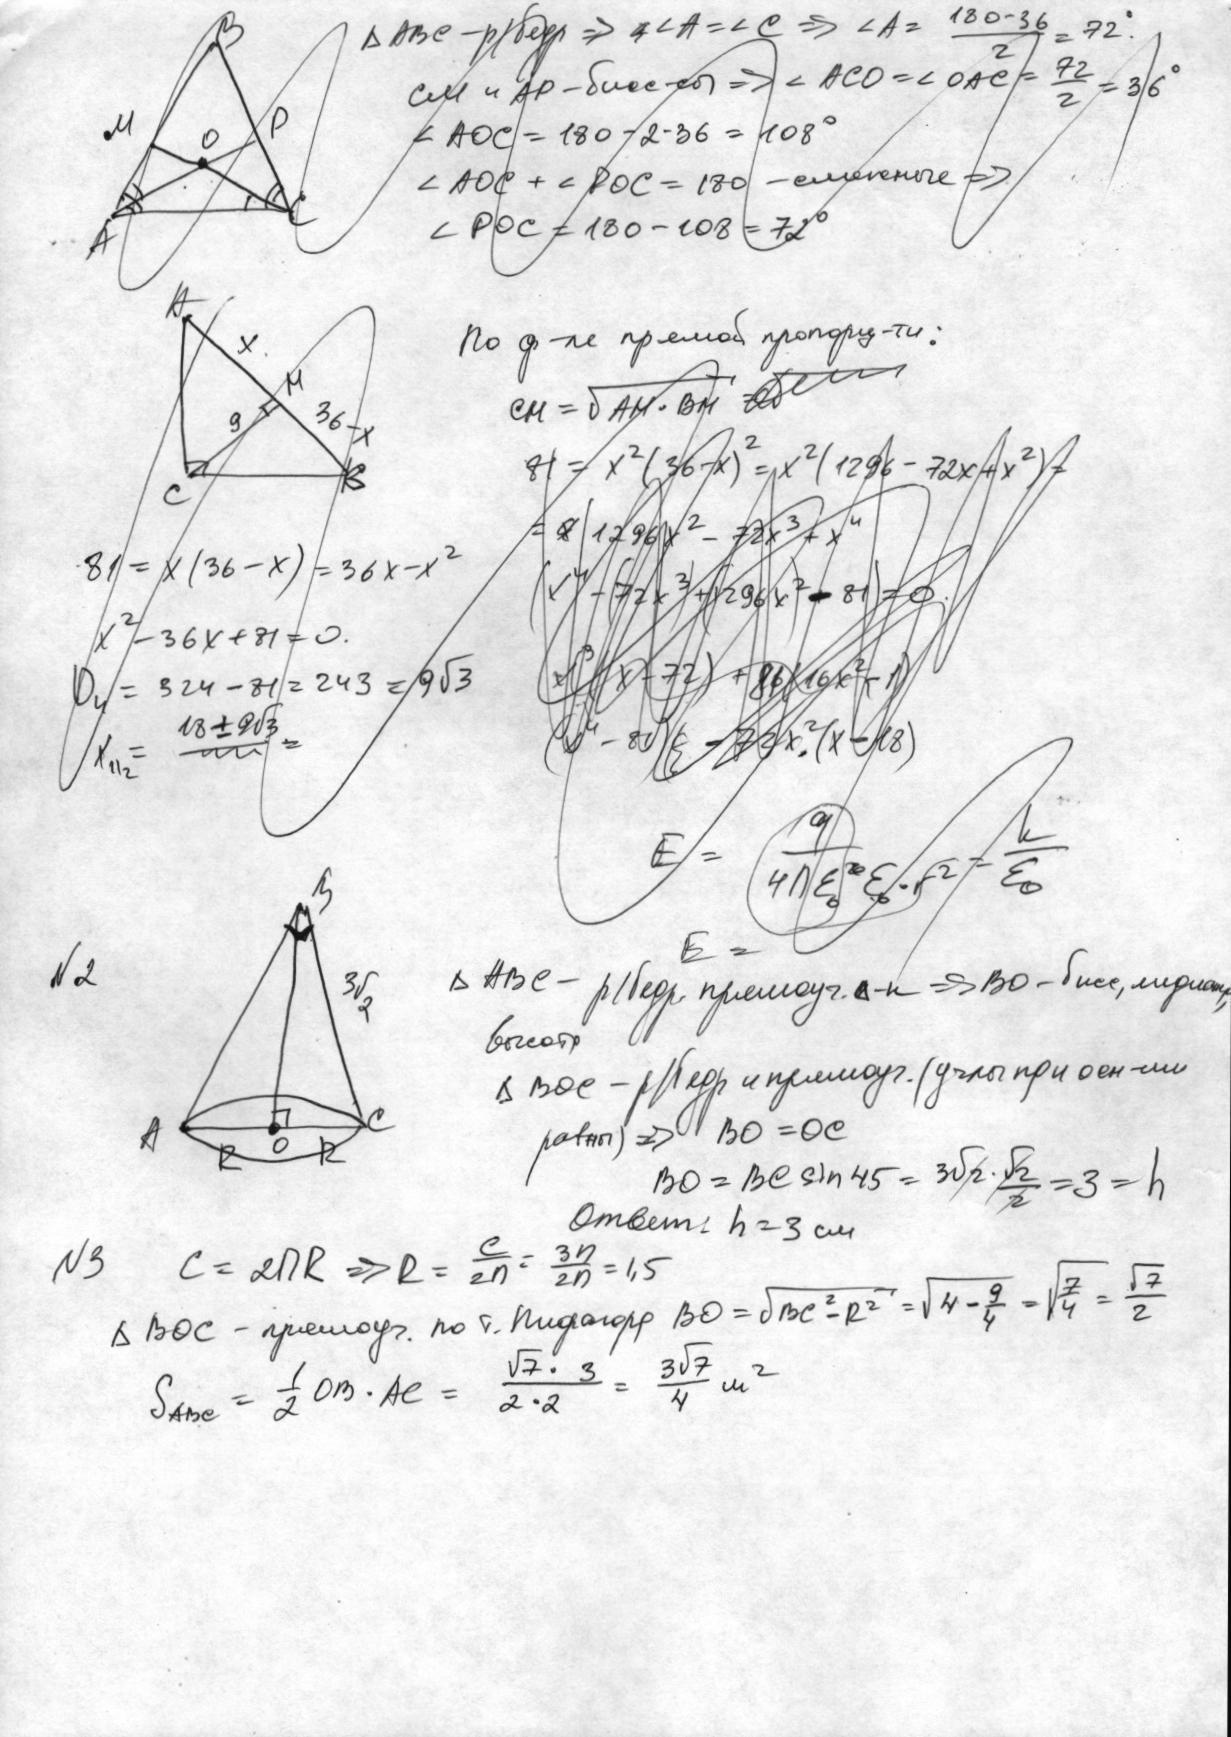 B
M
O
P
A
C
Δ ABC – р/бедр ⇒ ∠A = ∠C ⇒ ∠A = (180-36)/2 = 72°.
CM и AP – бис-сы ⇒ ∠ACO = ∠OAC = 72/2 = 36°
∠AOC = 180 - 2·36 = 108°
∠AOC + ∠POC = 180 – смежные ⇒
∠POC = 180 - 108 = 72°
A
x
H
9
36-x
C
B
По ф-ле прямоб пропорц-ти:
CH = √(AH · BH) =
81 = x²(36-x)² = x²(1296 - 72x + x²) =
= (1296x² - 72x³ + x⁴
(x⁴ - 72x³ + 1296x² - 81) = 0.
x³(x-72) + 81(16x²-1)
(x⁴ - 81) - 72x²(x-18)
81 = x(36-x) = 36x - x²
x² - 36x + 81 = 0.
D₄ = 324 - 81 = 243 = 9√3
x₁,₂ = 18 ± 9√3 =
E = q/(4πε₀ · r²) = k/ε₀
E =
N2
B
3√2
A
O
C
R
R
Δ ABC – р/бедр. прямоуг. Δ-к ⇒ BO – бисс, медиана,
высота
Δ BOC – р/бедр и прямоуг. (углы при осн-ии
равны) ⇒ BO = OC
BO = BC sin 45 = 3√2 · √2/2 = 3 = h
Ответ: h = 3 см
N3 C = 2ПR ⇒ R = C/2П = 3П/2П = 1,5
Δ BOC – прямоуг. по т. Пифагора BO = √(BC² - R²) = √(4 - 9/4) = √(7/4) = √7/2
S_ABC = 1/2 OB · AC = (√7 · 3)/(2·2) = 3√7/4 м²